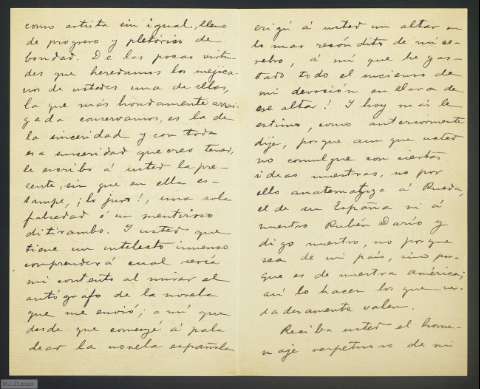 como artista sin igual, lleno
de progreso y pletórico de
bondad. De las pocas virtu-
des que heredamos los mejica-
nos de ustedes una de ellas,
la que más hondamente arrai-
gada conservamos, es la de
la sinceridad y con toda
esa sinceridad que creo tener,
le escribo á usted la pre-
sente, sin que en ella es-
tampe, ¡lo juro!, una sola
falsedad ó un mentiroso
ditirambo. Y usted que
tiene un intelecto inmenso
comprenderá cual sería
mi contento al mirar el
autógrafo de la novela
que me envió; á mí que
desde que comencé á pala-
dear la novela española
erigí á usted un altar en
lo mas recóndito de mi ce-
rebro, á mí que he gas-
tado todo el incienso de
mi devoción en llama de
ese altar! Y hoy más le
estimo, como anteriormente
dije, porque aun que usted
no comulgue con ciertas
ideas nuestras, no por
ello anatematiza á Rueda,
el de su España ni á
nuestro Rubén Darío y
digo nuestro, no porque
sea de mi país, sino por-
que es de nuestra américa;
así lo hacen los que ver-
daderamente valen.
Reciba usted el home-
naje respetuoso de mi